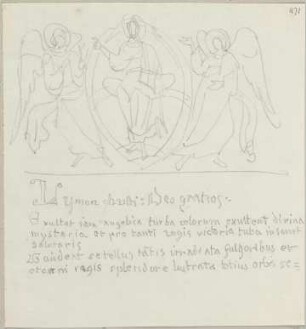 Lumen Christi: Deo gratias:
Exultet iam angelica turba celorum exultent divina
mysteria et pro tanti regis victoria tuba insonet
salutaris
Gaudeat se tellus tātis irradiata fulgoribus et
eterni regis splendore lustrata totius orbis se=